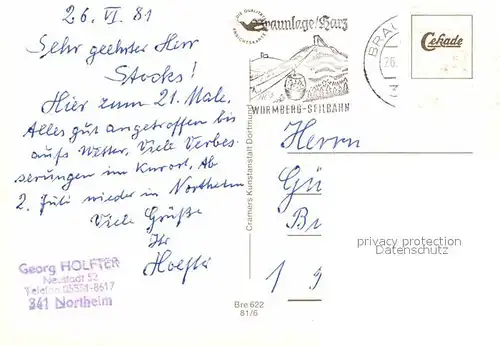 26. VI. 81
Sehr geehrter Herr
Stocks!
Hier zum 21. Male.
Alles gut angetroffen bis
aufs Wetter. Viele Verbes-
serungen im Kurort. Ab
2. Juli wieder in Northeim
Viele Grüße
Ihr
Holfter
Georg HOLFTER
Neustadt 52
Telefon 05551-8617
341 Northeim
Braunlage/Harz
WURMBERG-SEILBAHN
BRAU
26.
3
Cekade
Cramers Kunstanstalt Dortmund
Bre 622
81/6
Herrn
Gü
B
1 9
privacy protection
Datenschutz